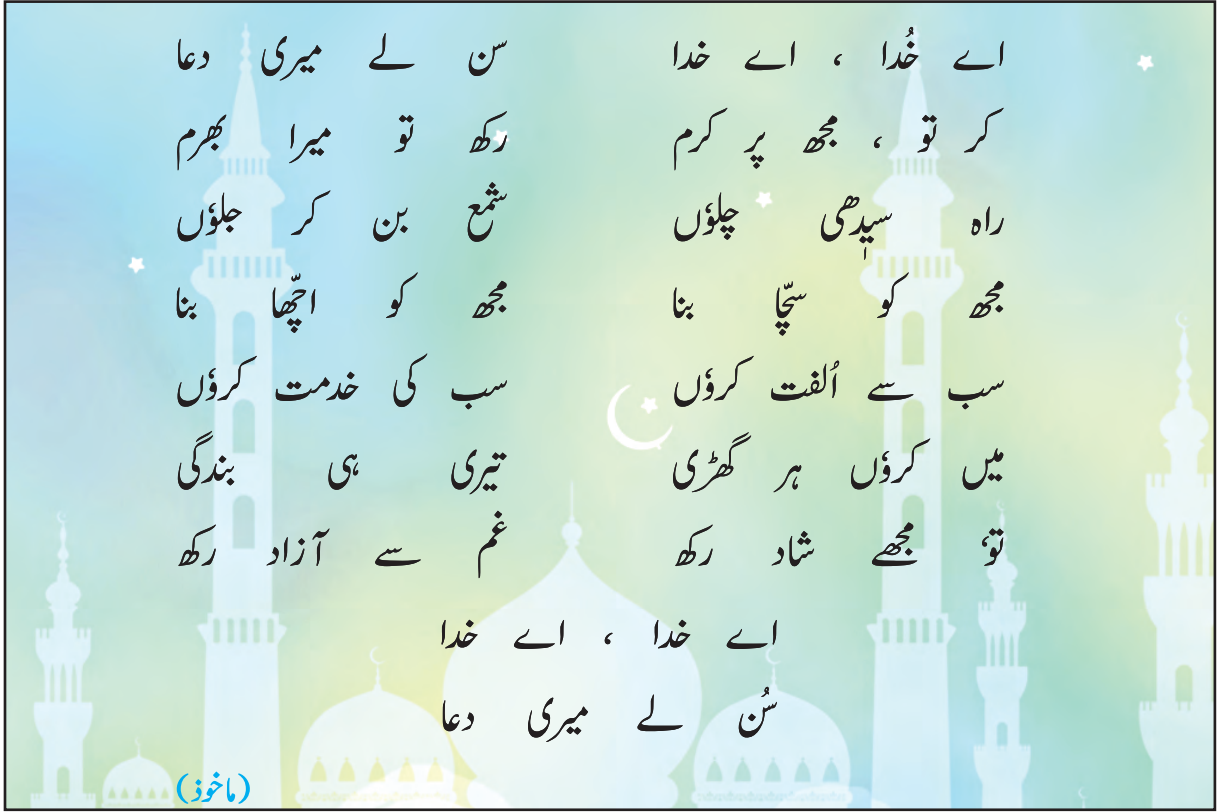 اے خُدا ، اے خدا سن لے میری دعا
کر تو ، مجھ پر کرم رکھ تو میرا بھرم
راہ سیٖدھی چلوٗں شمع بن کر جلوٗں
مجھ کو سچّا بنا مجھ کو اچّھا بنا
سب سے اُلفت کروٗں سب کی خدمت کروٗں
میں کروٗں ہر گھڑی تیری ہی بندگی
توٗ مجھے شاد رکھ غم سے آزاد رکھ
اے خدا ، اے خدا
سُن لے میری دعا
(ماخوذ)